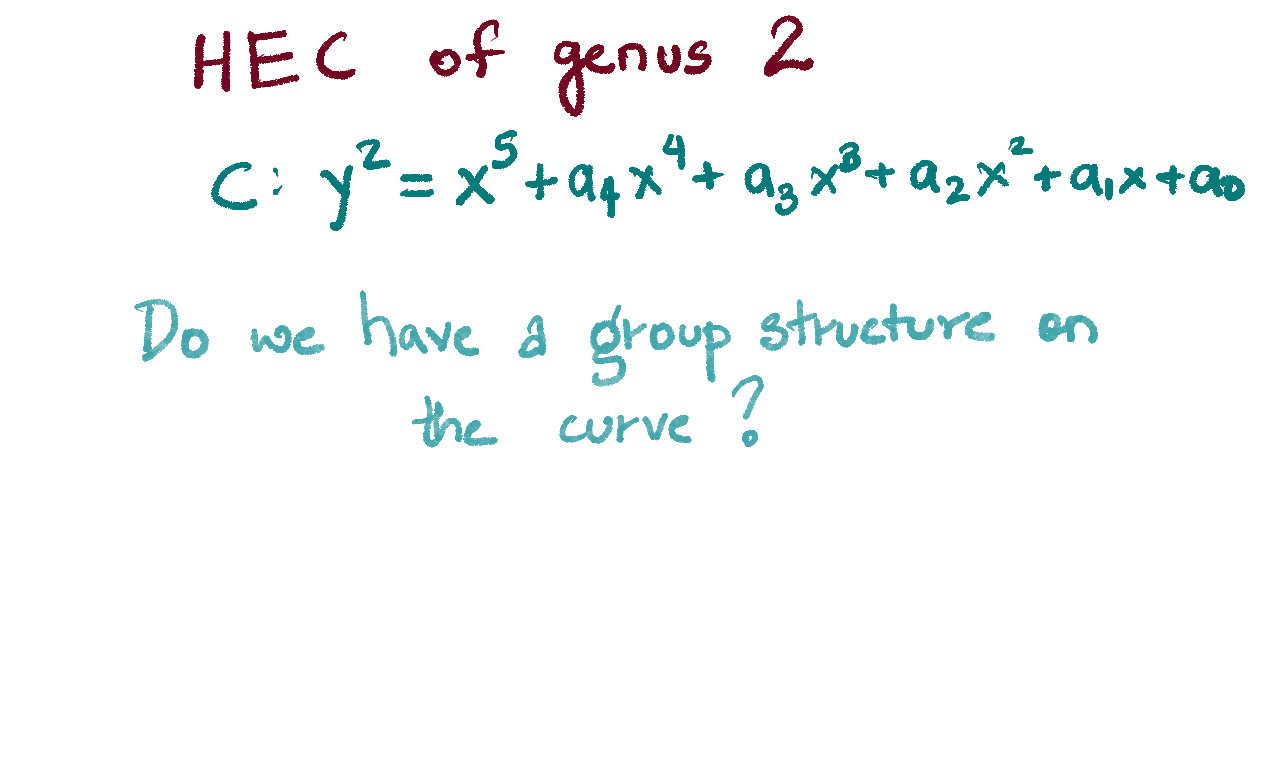 HEC of genus 2
C: y² = x⁵ + a₄x⁴ + a₃x³ + a₂x² + a₁x + a₀
Do we have a group structure on
the curve?